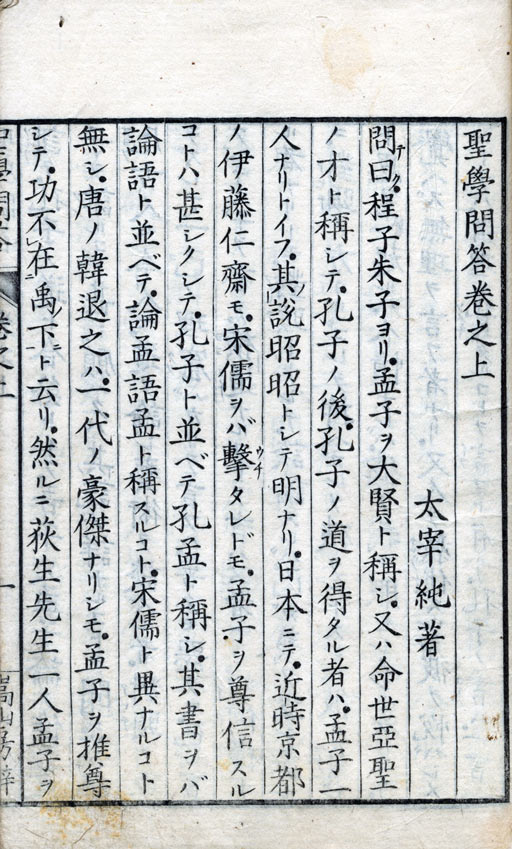 聖學問答卷之上
太宰純著
問曰。程子朱子ヨリ。孟子ヲ大賢ト稱シ。又ハ命世亞聖
ノ才ト稱シテ。孔子ノ後。孔子ノ道ヲ得タル者ハ。孟子一
人ナリトイフ。其説昭昭トシテ明ナリ。日本ニテ。近時京都
ノ伊藤仁齋モ。宋儒ヲバ擊タレドモ。孟子ヲ尊信スル
コトハ甚シクシテ。孔子ト並ベテ孔孟ト稱シ。其書ヲバ
論語ト並ベテ。論孟語孟ト稱スルコト。宋儒ト異ナルコト
無シ。唐ノ韓退之ハ。一代ノ豪傑ナリシモ。孟子ヲ推尊
シテ。功不在禹下ト云リ。然ルニ荻生先生一人孟子ヲ